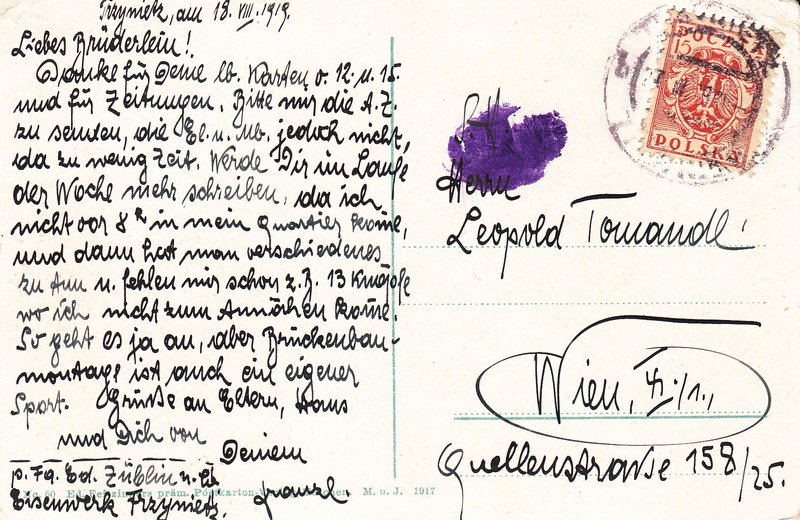 Trzynietz, am 18. VIII. 1919.
Liebes Brüderlein!
Danke für Deine lb. Karten v. 12. u. 15.
und für Zeitungen. Bitte mir die A.Z.
zu senden, die El. u. Mb. jedoch nicht,
da zu wenig Zeit. Werde Dir im Laufe
der Woche mehr schreiben, da ich
nicht vor 8h in mein Quartier kome,
und dann hat man verschiedenes
zu tun u. fehlen mir schon z.B. 13 Knöpfe
wo ich nicht zum Annähen kome.
So geht es ja an, aber Brückenbau-
montage ist auch ein eigener
Sport. Grüße an Eltern, Hans
und Dich von
Deinem
p. Fa. Ed. Züblin u. Co.
Eisenwerk Trzynietz, Franzl.
No. 60 Ed. präm. Postkarten- M. u. J. 1917
POCZTA
15
POLSKA
S.H.
Herrn
Leopold Tomandl.
Wien, /1.,
Quellenstraße 158/25.